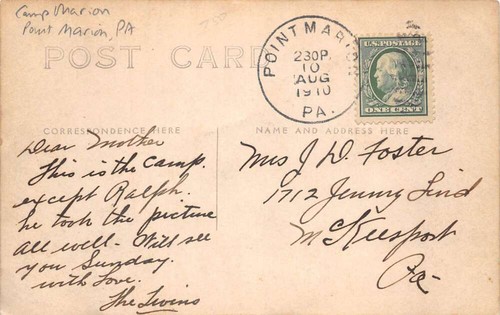 Camp Marion
Point Marion, PA
POST CARD
POINT MARION
230P.
10
AUG
1910
PA.
U.S. POSTAGE
ONE CENT
CORRESPONDENCE HERE
NAME AND ADDRESS HERE
Dear Mother
This is the camp.
except Ralph.
he took the picture
all well- Will see
you Sunday.
with Love.
The Twins
Mrs J D. Foster
1712 Jenny Lind
McKeesport
Pa-